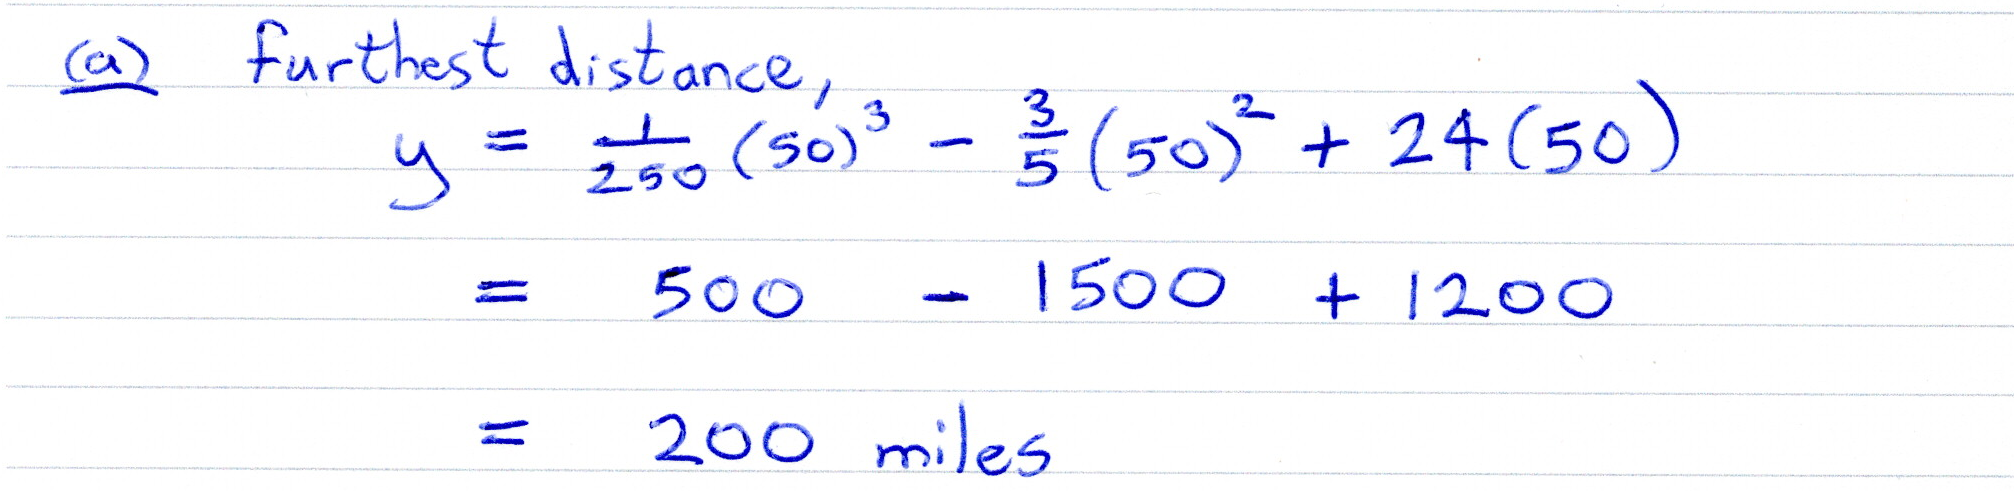 (a) furthest distance,
y = 1/250 (50)³ - 3/5 (50)² + 24(50)
= 500 - 1500 + 1200
= 200 miles